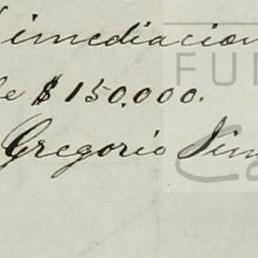 imediacion
de $150.000.
Gregorio Jim
FUN